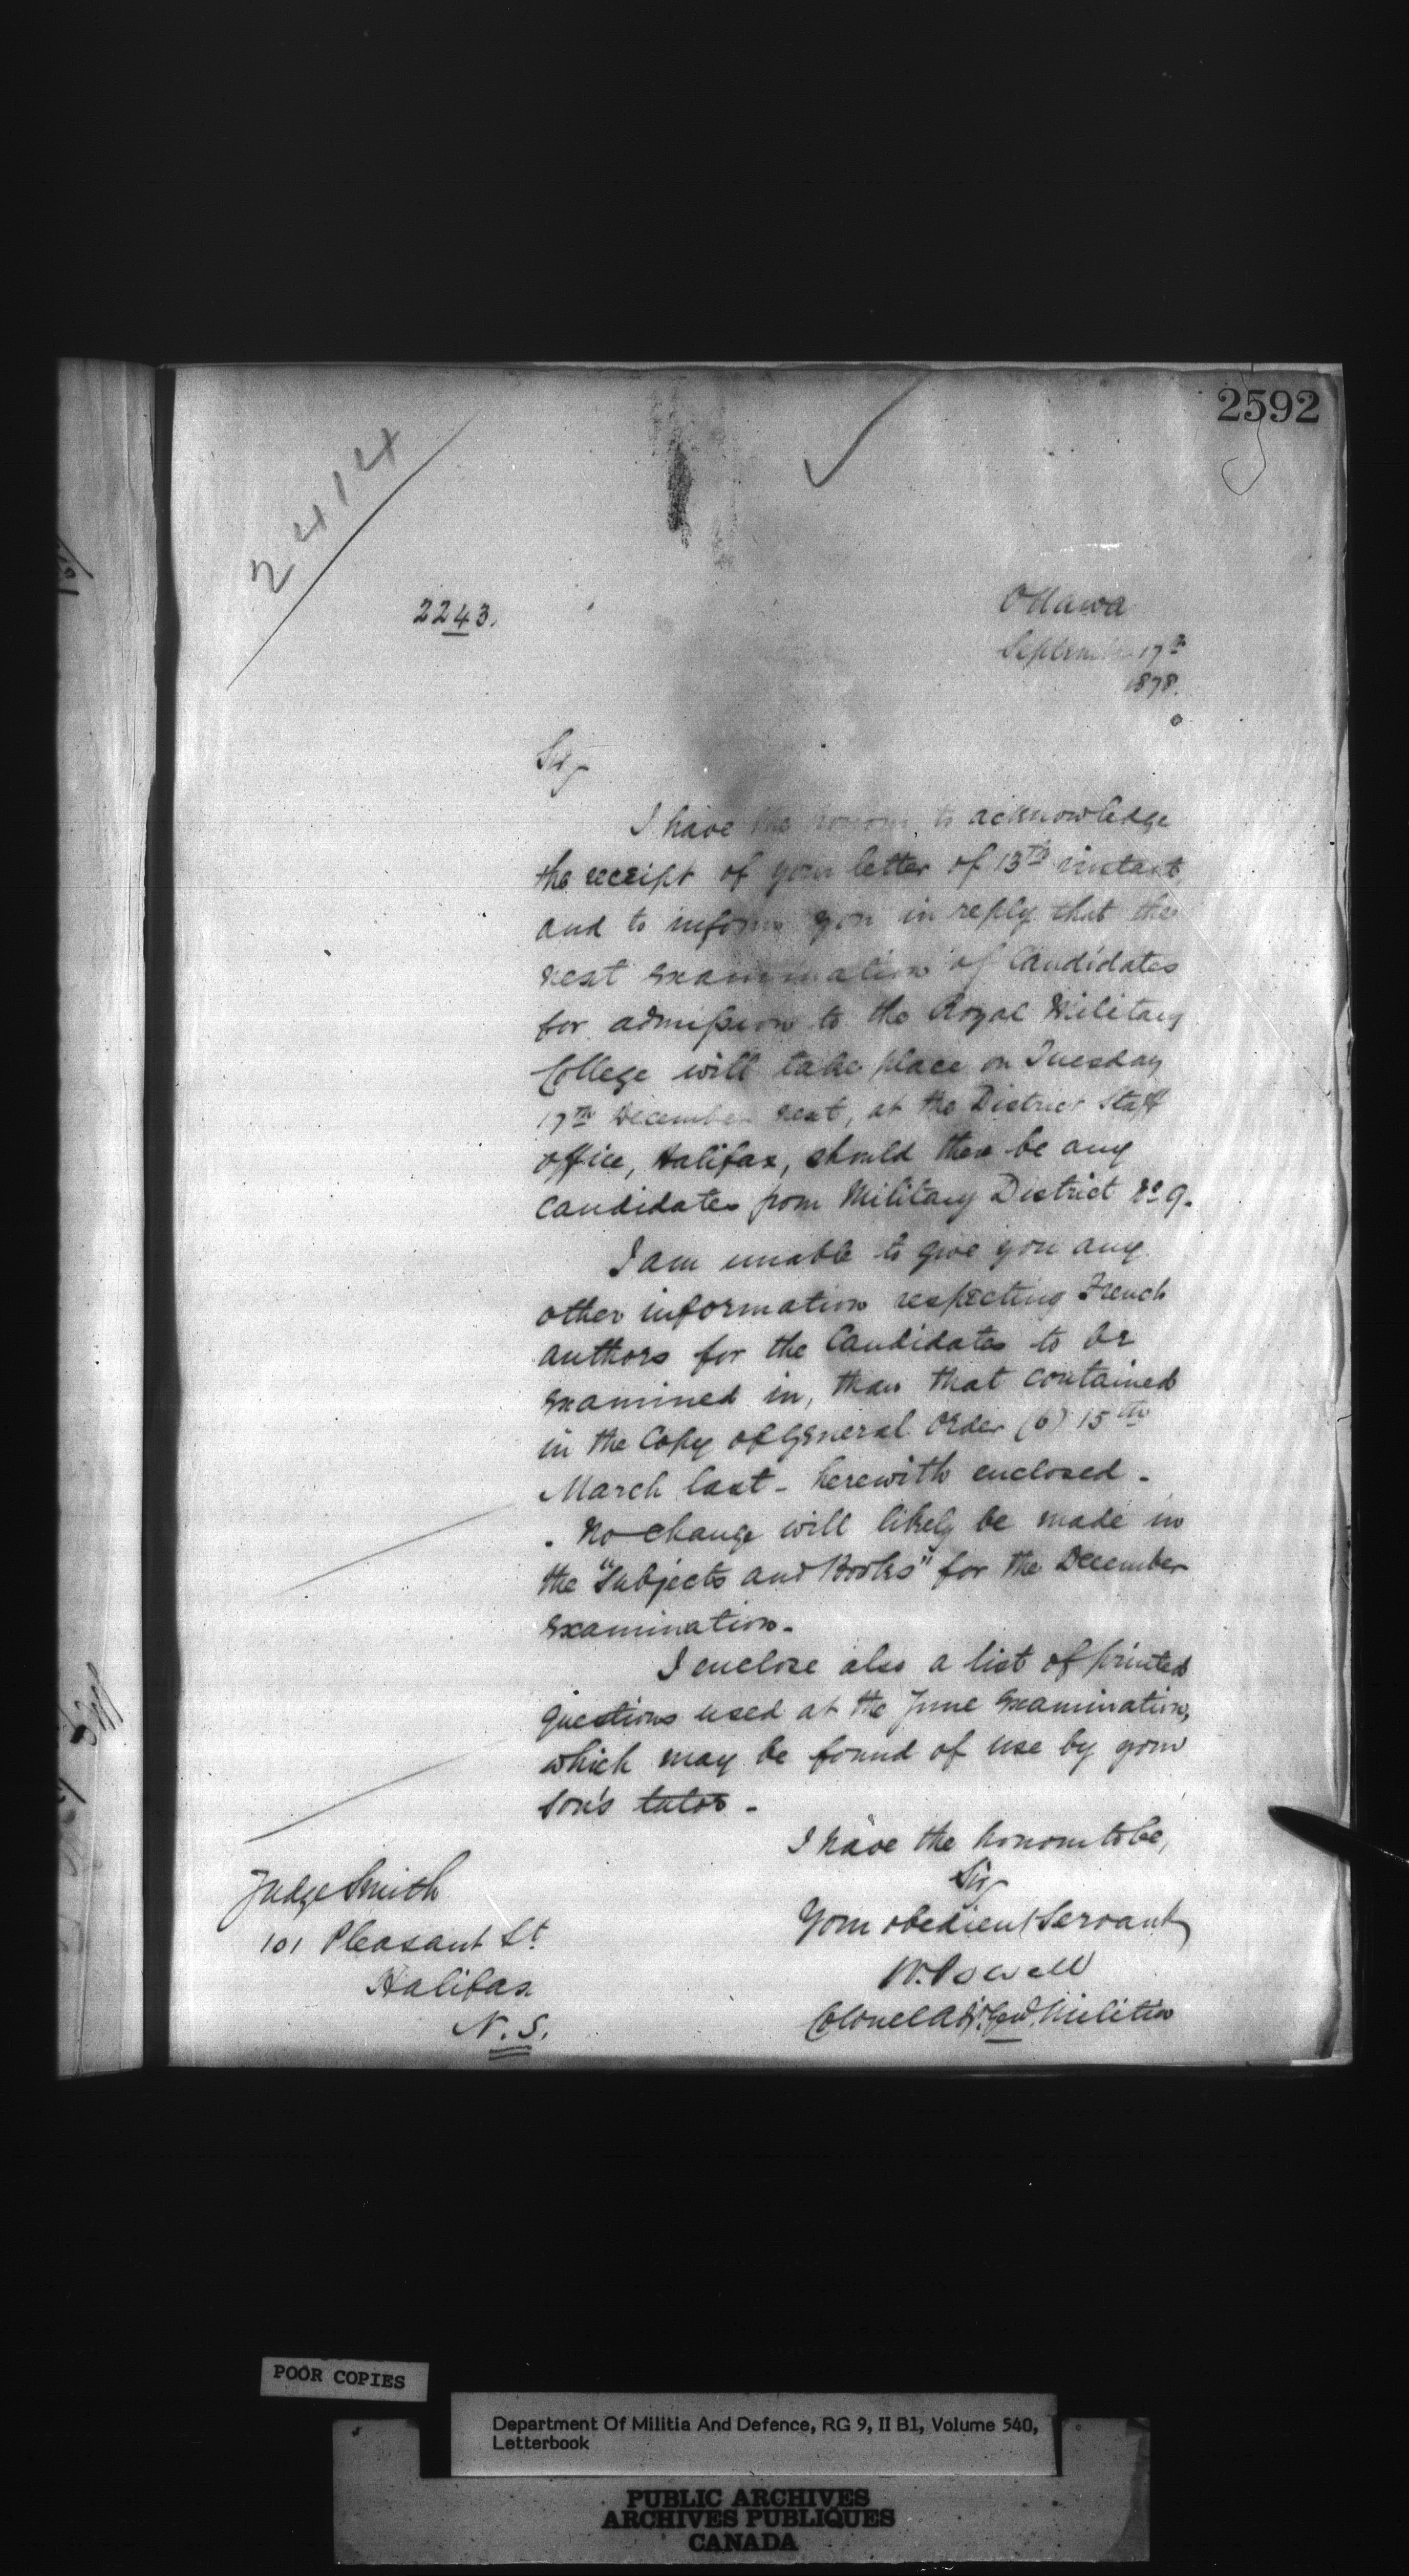 2592
2414
2243.
Ottawa
September 17th
1878.
Sir,
I have the honour to acknowledge
the receipt of your letter of 13th instant,
and to inform you in reply that the
next examination of Candidates
for admission to the Royal Military
College will take place on Tuesday
17th December next, at the District Staff
office, Halifax, should there be any
candidates from Military District No 9.
I am unable to give you any
other information respecting French
authors for the Candidates to be
examined in, than that contained
in the Copy of General Order (6) 15th
March last - herewith enclosed.
No change will likely be made in
the "Subjects and Books" for the December
examination.
I enclose also a list of printed
questions used at the June Examination,
which may be found of use by your
son's tutor -
I have the honour to be,
Sir,
Your obedient Servant,
W. Powell
Colonel Adjt. Genl. Militia
Judge Smith
101 Pleasant St
Halifax
N. S.
POOR COPIES
Department Of Militia And Defence, RG 9, II B1, Volume 540,
Letterbook
PUBLIC ARCHIVES
ARCHIVES PUBLIQUES
CANADA